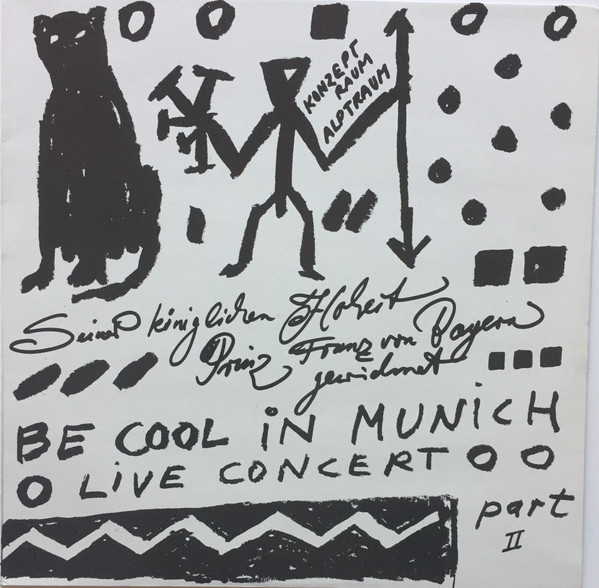 KONZEPT
RAUM
ALPTRAUM
Seiner königlichen Hoheit
Prinz Franz von Bayern
gewidmet
BE COOL IN MUNICH
LIVE CONCERT
part
II